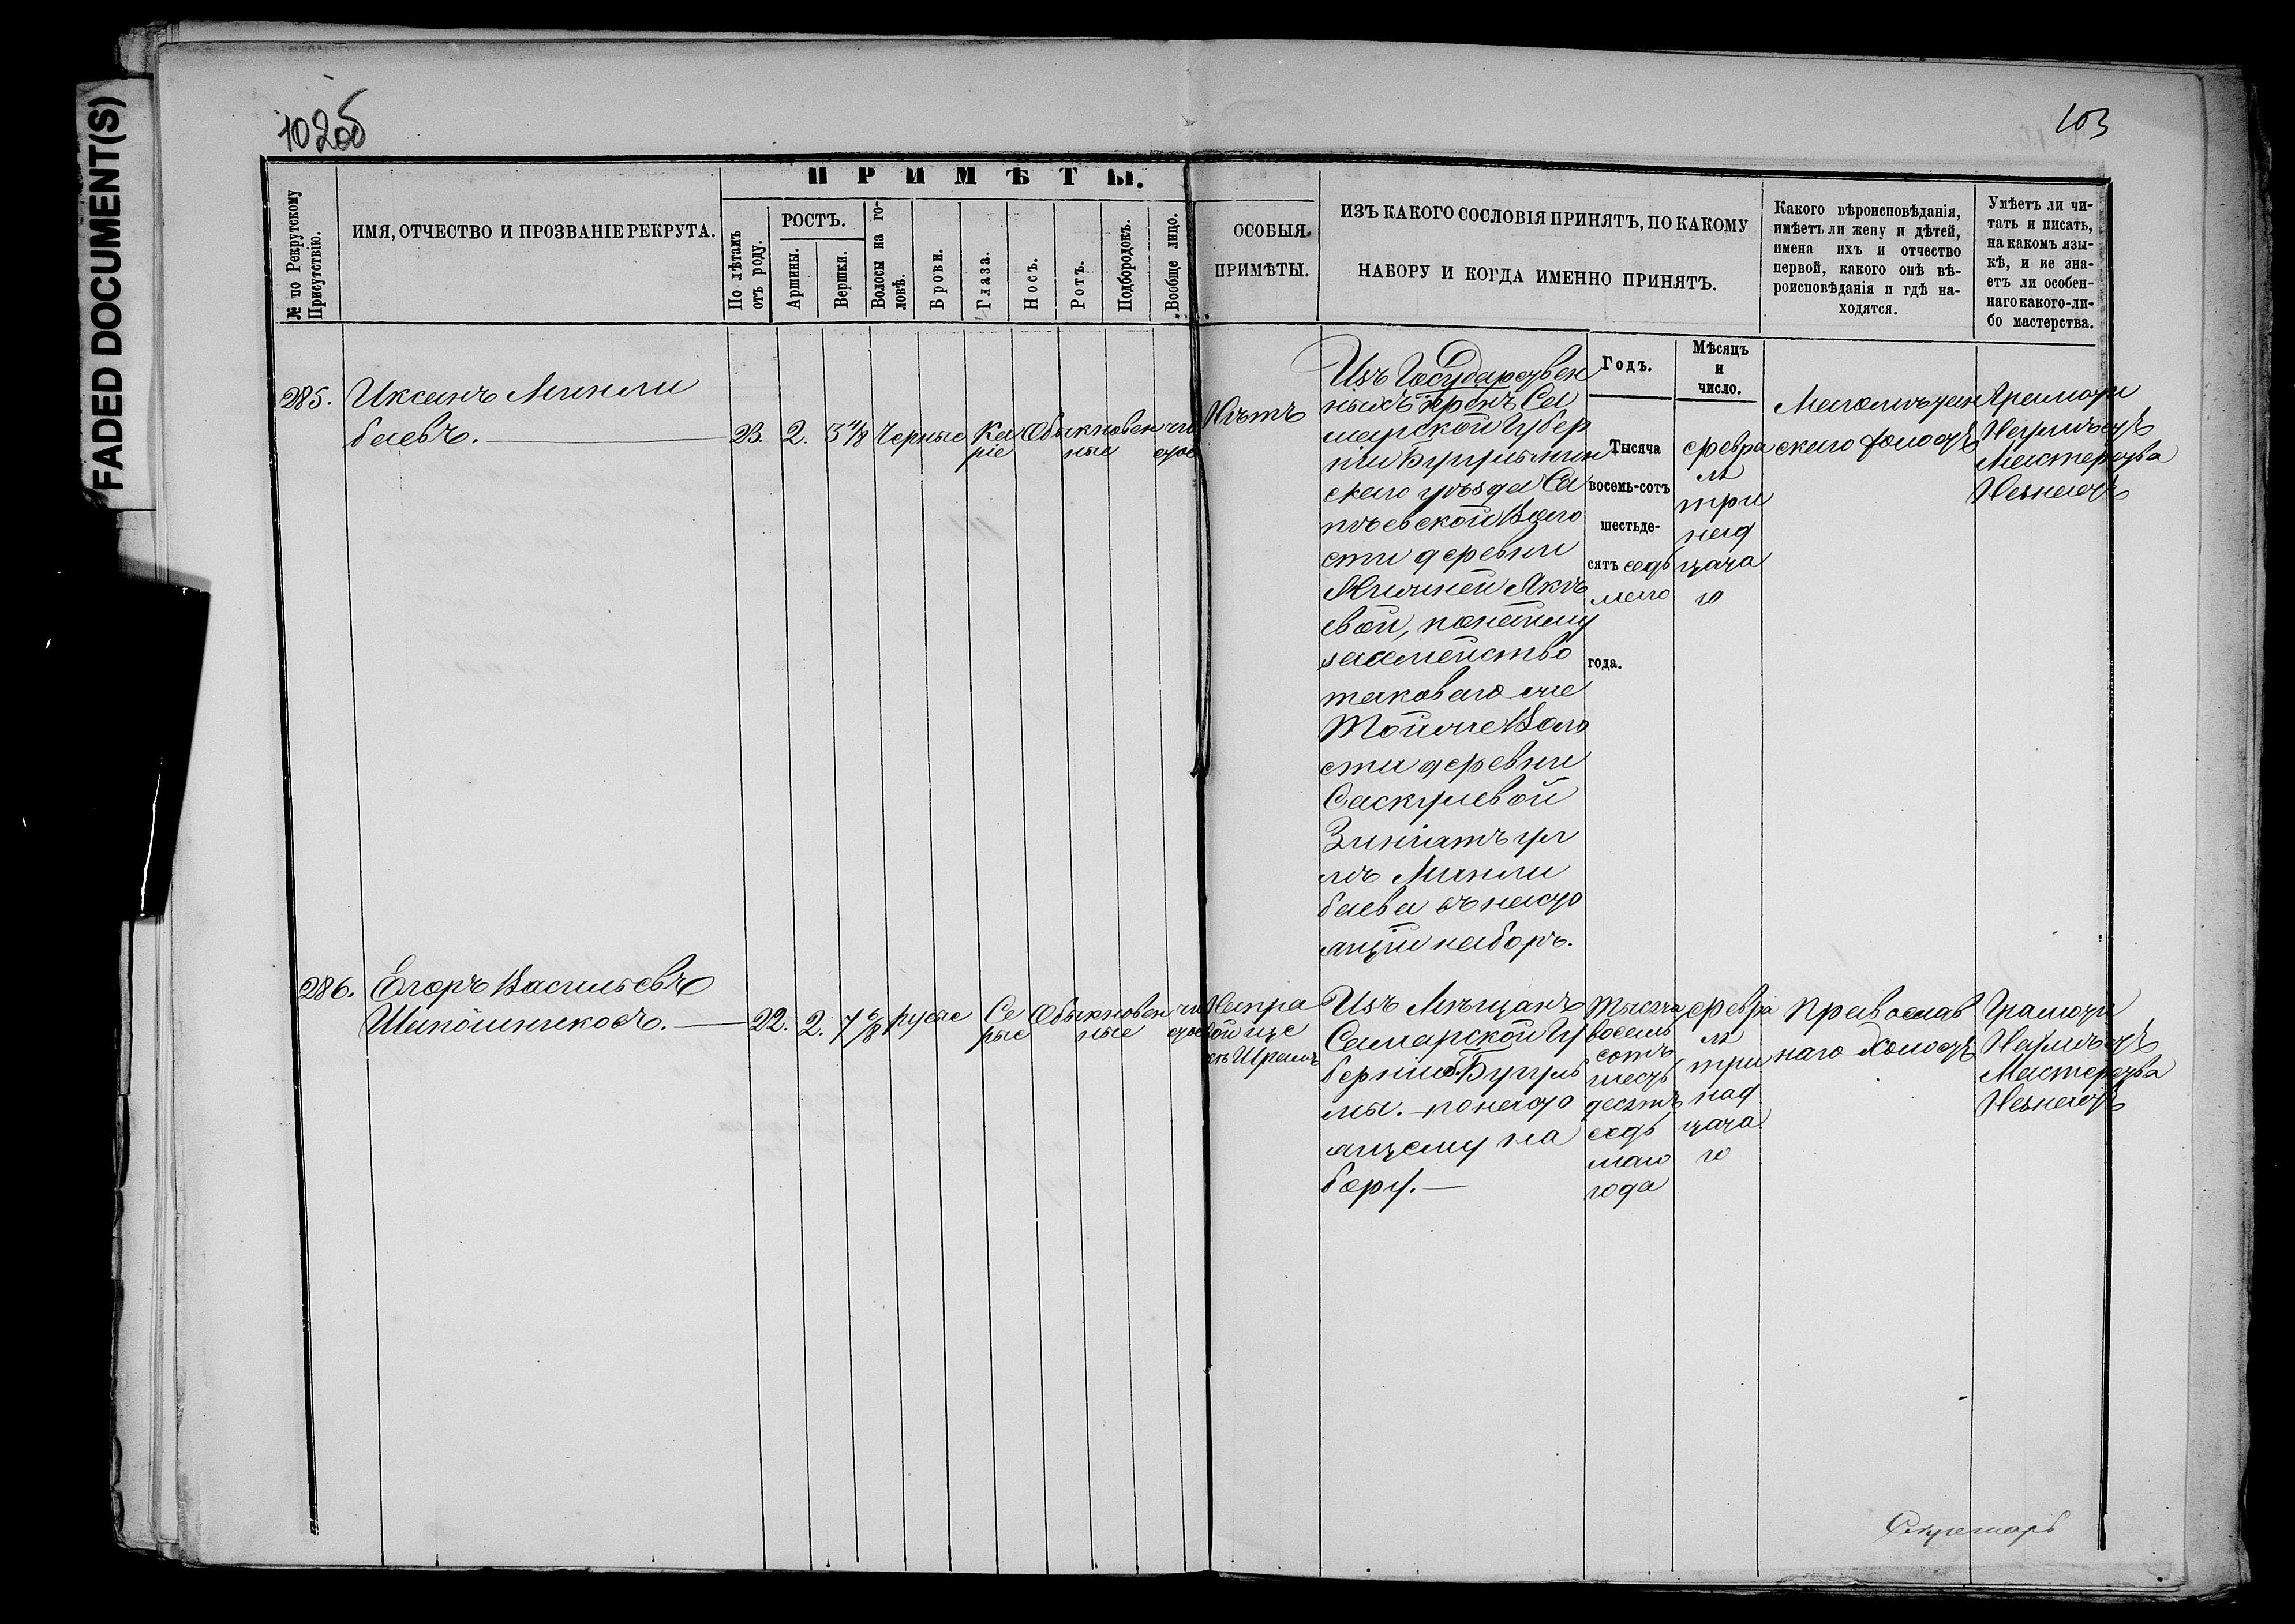 FADED DOCUMENT(S)
102об
103
ПРИМѢТЫ.
№ по Рекрутскому
Присутствію.
ИМЯ, ОТЧЕСТВО И ПРОЗВАНІЕ РЕКРУТА.
По лѣтамъ
отъ роду.
РОСТЪ.
Аршины.
Вершки.
Волосы на го-
ловѣ.
Брови.
Глаза.
Носъ.
Ротъ.
Подбородокъ.
Вообще лицо.
ОСОБЫЯ
ПРИМѢТЫ.
ИЗЪ КАКОГО СОСЛОВІЯ ПРИНЯТЪ, ПО КАКОМУ
НАБОРУ И КОГДА ИМЕННО ПРИНЯТЪ.
Какого вѣроисповѣданія,
имѣетъ ли жену и дѣтей,
имена ихъ и отчество
первой, какого онѣ вѣ-
роисповѣданія и гдѣ на-
ходятся.
Умѣетъ ли чи-
тать и писать,
на какомъ язы-
кѣ, и не зна-
етъ ли особен-
наго какого-ли-
бо мастерства.
Годъ.
Мѣсяцъ
и
число.
285.
Иксанъ Минли
баевъ.
23.
2.
3 4/8
Черные
Ка
ріе
Обыкновен
ные
чи
стое
Нѣтъ
Изъ Государствен
ныхъ крснъ Са
марской Губер
ніи Бугульмин
скаго уѣзда Са
Воло
сти деревни
евой,
за семейство
таковаго же
Той же Воло
сти деревни
Саскулевой
Зиніатъ ул
лѣ Минли
баева въ насто
ащій наборъ.
Тысяча
восемь-сотъ
шестьде-
сятъ седь
маго
года.
Февра
ля
три
над
цата
го
Магометан
скаго холостъ
Грамоти
Неумѣетъ
Мастерства
Незнаетъ
286.
Егоръ Васильевъ
Шапошниковъ.
22.
2.
7 6/8
русые
Се
рые
Обыкновен
ные
чи
стое
На пра
вой ще
кѣ Шрамъ
Изъ Мѣщанъ
Самарской Гу
берніи г. Бугуль
мы. по насто
ащему на
бору.
Тысяча
восемь
сотъ
шесть
десятъ
седь
маго
года
Февра
ля
три
над
цата
го
Православ
наго холостъ
Грамоти
Неумѣетъ
Мастерства
Незнаетъ
Секретарь